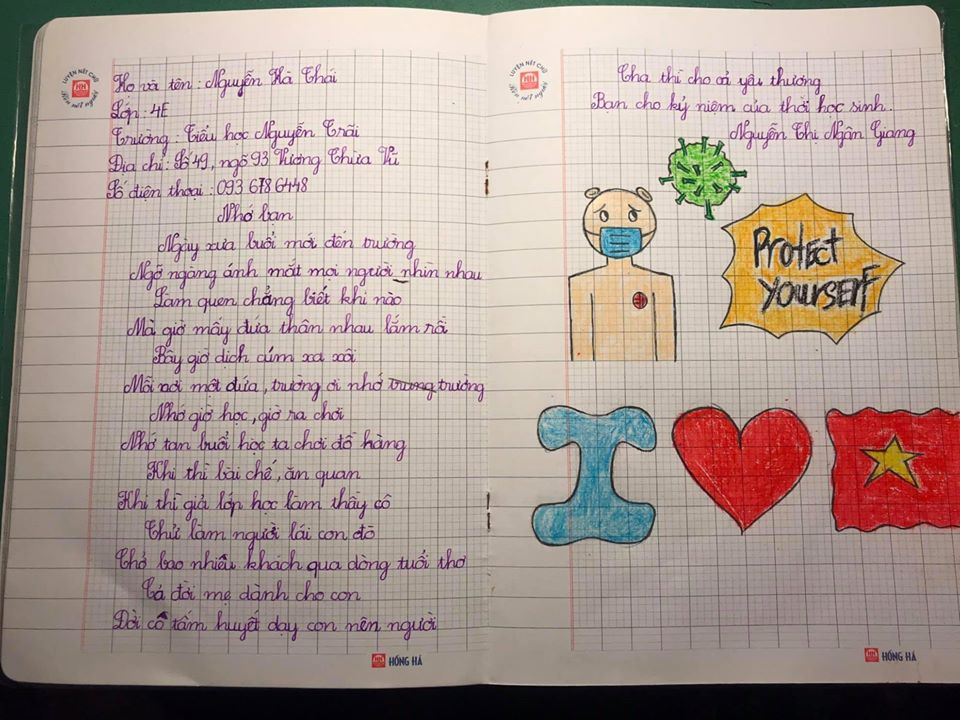 LUYỆN NÉT CHỮ
Rèn nết người
Họ và tên : Nguyễn Hà Thái
Lớp : 4E
Trường : Tiểu học Nguyễn Trãi
Địa chỉ : Số 49, ngõ 93 Vương Thừa Vũ
Số điện thoại : 093 678 6448
Nhớ bạn
Ngày xưa buổi mới đến trường
Ngỡ ngàng ánh mắt mọi người nhìn nhau
Làm quen chẳng biết khi nào
Mà giờ mấy đứa thân nhau lắm rồi
Bây giờ dịch cúm xa xôi
Mỗi nơi một đứa, trường ơi nhớ trường
Nhớ giờ học, giờ ra chơi
Nhớ tan buổi học ta chơi đồ hàng
Khi thì bài chế, ăn quan
Khi thì giả lớp học làm thầy cô
Thử làm người lái con đò
Chở bao nhiêu khách qua dòng tuổi thơ
Cả đời mẹ dành cho con
Đời cô tấm huyết dạy con nên người
HỒNG HÀ
LUYỆN NÉT CHỮ
Rèn nết người
Cha thì cho cả yêu thương
Bạn cho kỷ niệm của thời học sinh.
Nguyễn Thị Ngân Giang
Protect
YourSElF
I
HỒNG HÀ